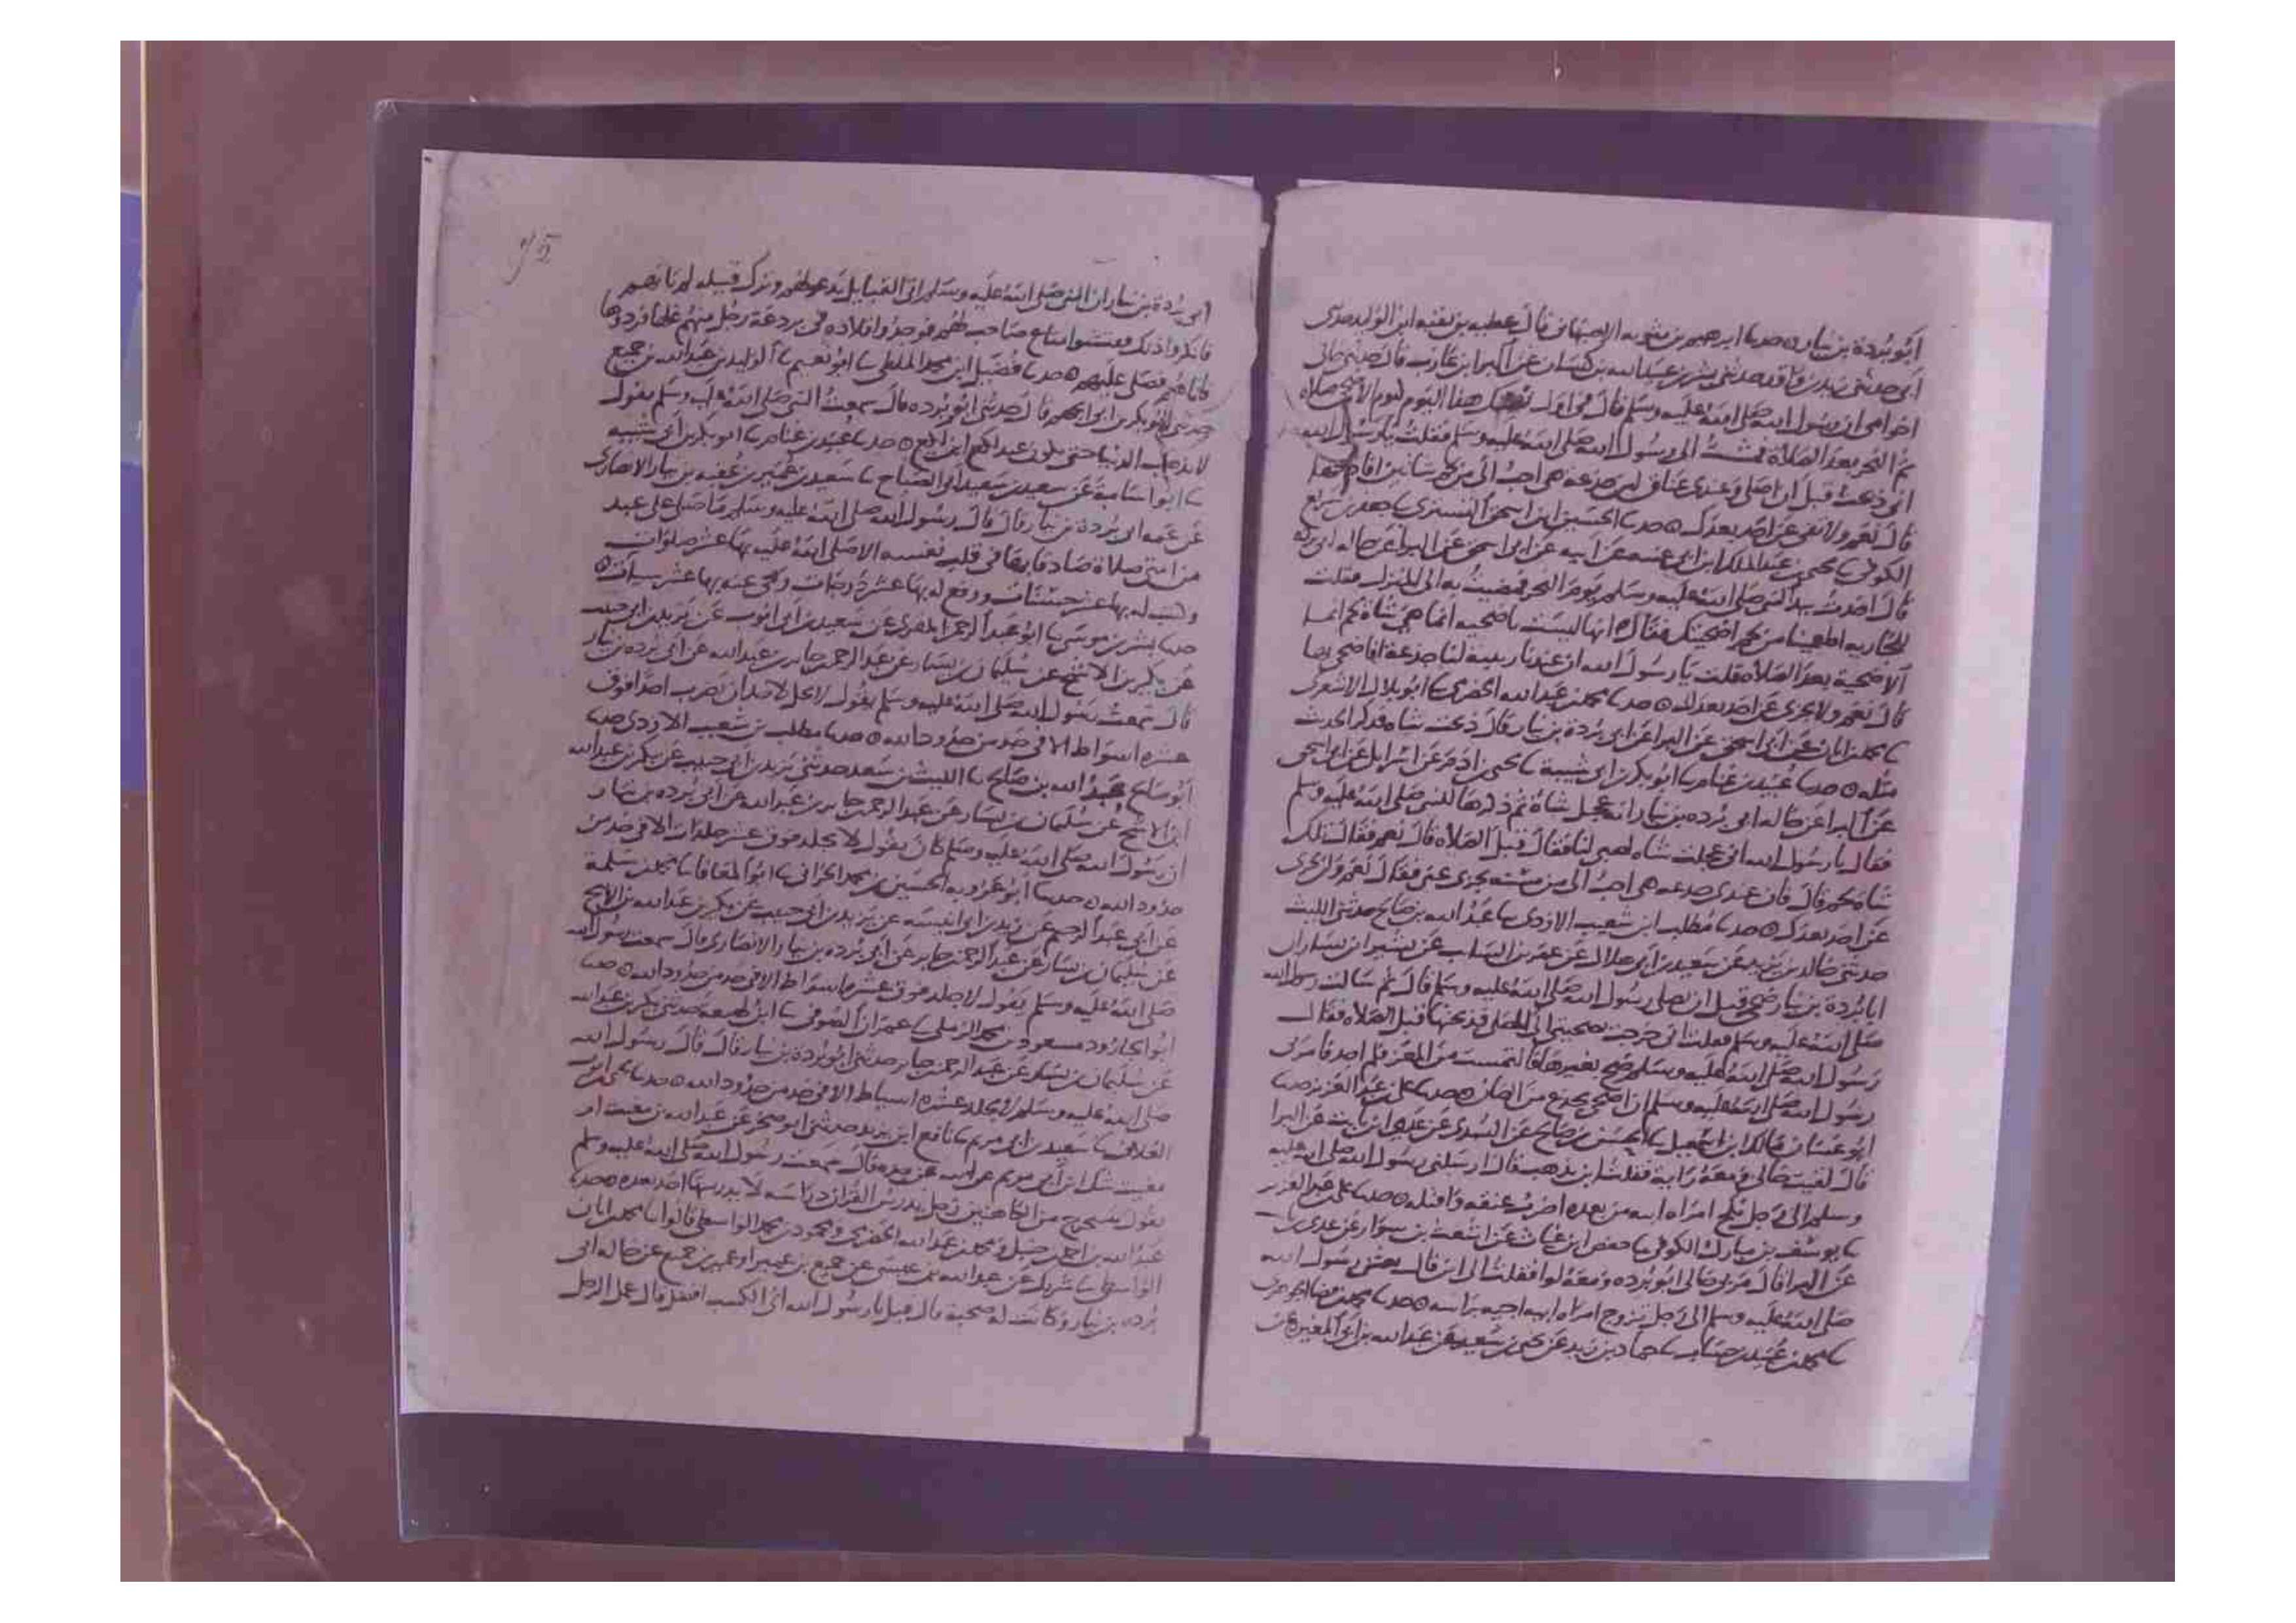 أبو بردة بن نيار ۞ حدثنا ابرهيم بن متويه الاصبهاني قال عطيه بن بقيه ابن الوليد حدثني
أبي حدثني زيد بن واقد حدثني بشر بن عبيد الله بن كيسان عن البرا بن عازب قال حدثني خالي
اخوا مي ان رسول الله صلى الله عليه وسلم قال في اول هذا اليوم ليوم الاضحى صلاة
ثم النحر بعد الصلاة فمشيت الى رسول الله صلى الله عليه وسلم فقلت يا رسول الله
اني ذبحت قبل ان اصلي وعندي عناق لبن جذعة هي احب الي من شاتين
قال نعم ولا تفي عن احد بعدك ۞ حدثنا الحسين ابن اسحق التستري
الكوفي يحيى بن عبد الملك ابن ابي غنيه عن ابيه عن ابي اسحق عن البرا عن خاله ابي بردة
قال اخذت بيد النبي صلى الله عليه وسلم يوم النحر فمضيت به الى المنزل فقلت
للجاريه اطعمينا من لحم اضحيتك فقال انها ليست باضحيه انما هي شاة لحم انما
الاضحية بعد الصلاة فقلت يا رسول الله ان عندنا ربيبة لنا جذعة افاضحي بها
قال نعم ولا تجزي عن احد بعدك ۞ حدثنا محمد بن عبد الله الحضرمي ثنا ابو بلال الاشعري
ثنا محمد بن ابان عن أبي اسحق عن البرا عن ابي بردة بن نيار قال ذبحت شاة فذكر الحديث
مثله ۞ حدثنا عبيد بن غنام ثنا ابو بكر بن ابي شيبة ثنا يحيى بن ادم عن اسرايل عن ابي اسحق
عن البرا عن خاله ابي بردة بن نيار انه عجل شاة ثم ذكرها للنبي صلى الله عليه وسلم
فقال يا رسول الله اني عجلت شاة لحم لنا فقال قبل الصلاة قال نعم فقال تلك
شاة لحم قال فان عندي جذعه هي احب الي من مسنه تجزي عني فقال نعم ولن تجزي
عن احد بعدك ۞ حدثنا مطلب ابن شعيب الازدي ثنا عبد الله بن صالح حدثني الليث
حدثني خالد بن يزيد عن سعيد بن ابي هلال عن عمر بن السايب عن بشير ابن يسار ان
ابا بردة بن نيار ضحى قبل ان يصلي رسول الله صلى الله عليه وسلم قال ثم سالت رسول الله
صلى الله عليه وسلم فقلت اني خرجت بضحيتي الى المصلى فذبحتها قبل الصلاة فقال
رسول الله صلى الله عليه وسلم ضح بغيرها فالتمست من المعز فلم اجد فامرني
رسول الله صلى الله عليه وسلم ان اضحي بجذع من الضان ۞ حدثنا علي بن عبد العزيز حدثنا
ابو غسان مالك ابن اسمعيل ثنا الحسن بن صالح عن السدي عن عدي ابن ثابت عن البرا
قال لقيت خالي ومعه راية فقلت اين يذهب قال ارسلني رسول الله صلى الله عليه
وسلم الى رجل نكح امراة ابيه من بعده اضرب عنقه واقتله ۞ حدثنا علي بن عبد العزيز
ثنا يوسف بن مبارك الكوفي ثنا حفص ابن غياث عن اشعث بن سوار عن عدي ثابت
عن البرا قال مر بي خالي ابو بردة ومعه لوا فقلت الى اين قال بعثني رسول الله
صلى الله عليه وسلم الى رجل تزوج امراة ابيه اجيه براسه ۞ حدثنا
ثنا محمد بن عبيد بن حساب ثنا حماد بن زيد عن يحيى بن سعيد عن عبد الله بن ابي المغيرة عن
95
ابي بردة بن نيار ان النبي صلى الله عليه وسلم اتى القبايل يدعو لهم وترك قبيله لم ياتهم
فانكروا ذلك ففتشوا متاع صاحب لهم فوجدوا قلادة في بردعة رجل منهم غلها فردوها
فاتاهم فصلى عليهم ۞ حدثنا فضيل ابن محمد الملطي ثنا ابو نعيم ثنا الوليد بن عبد الله بن جميع
حدثني ابو بكر بن ابي الجهم قال حدثني ابو بردة قال سمعت النبي صلى الله عليه وسلم يقول
لا تذهب الدنيا حتى تكون عند لكع ابن لكع ۞ حدثنا عبيد بن غنام ثنا ابو بكر بن أبي شيبه
ثنا ابو اسامة عن سعيد بن سعيد أبي الصباح ثنا سعيد بن عمير بن عقبه بن نيار الانصاري
عن عمه ابي بردة بن نيار قال قال رسول الله صلى الله عليه وسلم ما صلى علي عبد
من امتي صلاة صادقا بها في قلب نفسه الا صلى الله عليه بها عشر صلوات
وكتب له بها عشر حسنات ورفع له بها عشر درجات ومحي عنه بها عشر سيات ۞
حدثنا بشر بن موسى ثنا ابو عبد الرحمن المقرى عن سعيد بن ابي ايوب عن يزيد بن ابي حبيب
عن بكير بن الاشج عن سليمان بن يسار عن عبد الرحمن جابر بن عبد الله عن ابي بردة بن نيار
قال سمعت رسول الله صلى الله عليه وسلم يقول لا يحل لاحد ان يضرب احدا فوق
عشرة اسواط الا في حد من حدود الله ۞ حدثنا مطلب بن شعيب الازدي حدثنا
ابو صالح عبد الله بن صالح ثنا الليث بن سعد حدثني يزيد بن ابي حبيب عن بكير بن عبد الله
ابن الاشج عن سليمان بن يسار عن عبد الرحمن جابر بن عبد الله عن ابي بردة بن نيار
ان رسول الله صلى الله عليه وسلم كان يقول لا يجلد فوق عشر جلدات الا في حد من
حدود الله ۞ حدثنا ابو عروبه الحسين بن محمد الحراني ثنا ابو المعافا ثنا محمد بن سلمة
عن ابي عبد الرحيم عن زيد بن ابي انيسه عن يزيد بن ابي حبيب عن بكير بن عبد الله بن الاشج
عن سليمان بن يسار عن عبد الرحمن جابر عن ابي بردة بن نيار الانصاري قال سمعت رسول الله
صلى الله عليه وسلم يقول لا جلد فوق عشرة اسواط الا في حد من حدود الله ۞ حدثنا
ابو الجارود مسعود بن محمد الرملي ثنا عمران الصوفي ثنا ابن لهيعه حدثني بكير بن عبد الله
عن سليمان بن يسار عن عبد الرحمن جابر حدثني ابو بردة بن نيار قال قال رسول الله
صلى الله عليه وسلم لا يجلد عشرة اسياط الا في حد من حدود الله ۞ حدثنا يحيى بن ايوب
العلاف ثنا سعيد بن ابي مريم ثنا نافع ابن يزيد حدثني ابو صخر عن عبد الله بن معتب او
مغيث شك ابن أبي مريم عن ابيه عن جده قال سمعت رسول الله صلى الله عليه وسلم
يقول يخرج من الكاهنين رجل يدرس القران دراسه لا يدرسها احد بعده ۞ حدثنا
عبد الله بن احمد بن حنبل ومحمد بن عبد الله الحضرمي ومحمود بن محمد الواسطي قالوا ثنا محمد بن ابان
الواسطي ثنا شريك عن عبد الله بن عيسى عن جميع بن عمير او عمير بن جميع عن خاله ابي
بردة بن نيار وكانت له صحبة قال قيل يا رسول الله اي الكسب افضل قال عمل الرجل